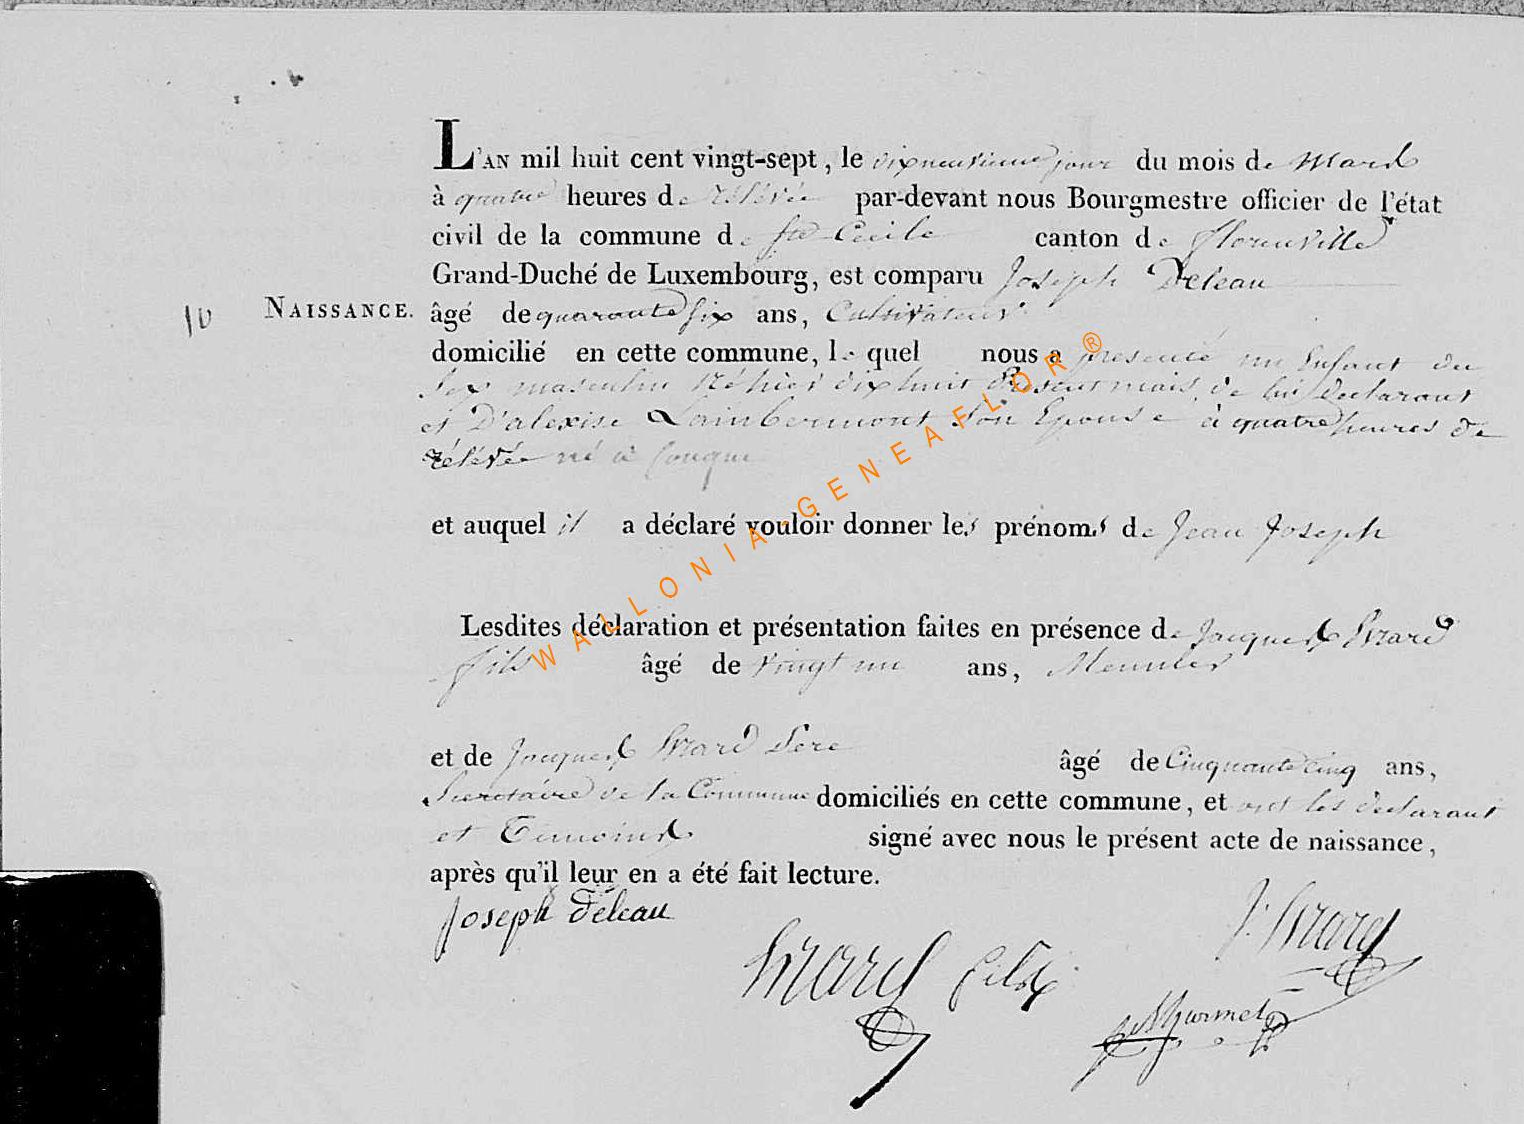 L'AN mil huit cent vingt-sept, le dixneuvieme jour du mois de Mars
à quatre heures de rélévée par-devant nous Bourgmestre officier de l'état
civil de la commune de Ste Cecile canton de florenville
Grand-Duché de Luxembourg, est comparu Joseph Deleau
10 NAISSANCE. âgé de quarante six ans, Cultivateur
domicilié en cette commune, le quel nous a presenté un Enfant du
Sex masculin Né hier dix huit present mois, de lui declarant
et D'alexise Lambermont Son Epouse à quatre heures de
rélévée né à Conque
et auquel il a déclaré vouloir donner les prénoms de Jean Joseph
Lesdites déclaration et présentation faites en présence de Jacques
fils âgé de vingt un ans, Meunier
et de Jacques Pere âgé de Cinquante cinq ans,
Secretaire de la Commune domiciliés en cette commune, et ont les declarant
et Temoins signé avec nous le présent acte de naissance,
après qu'il leur en a été fait lecture.
Joseph Deleau
fils
WALLONIA-GENEAFLOR®